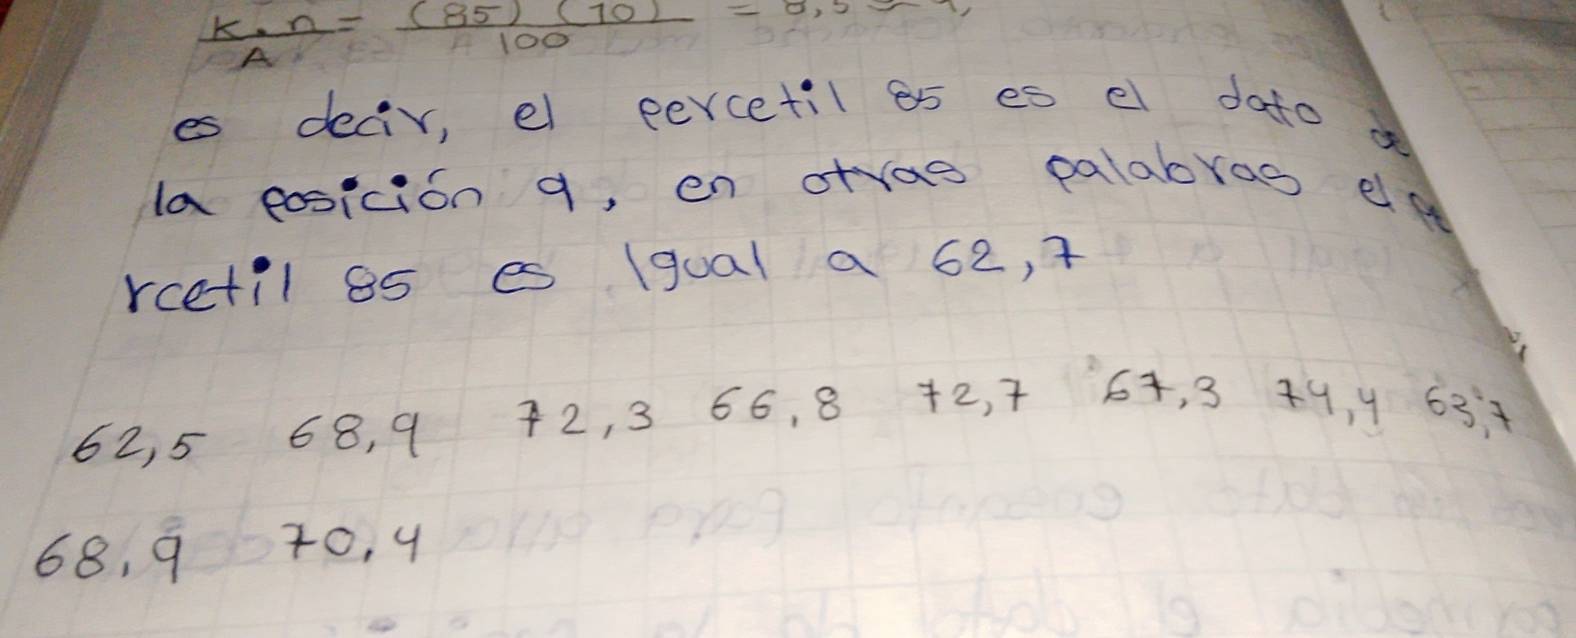 K.n = (85) (10) = 8,5 ≈ 9,
A 100
es decir, el percetil 85 es el dato de
la posición 9, en otras palabras el pe
rcetil 85 es Igual a 62,7
62,5 68,9 72,3 66,8 72,7 67,3 74,4 63,7
68,9 70,4